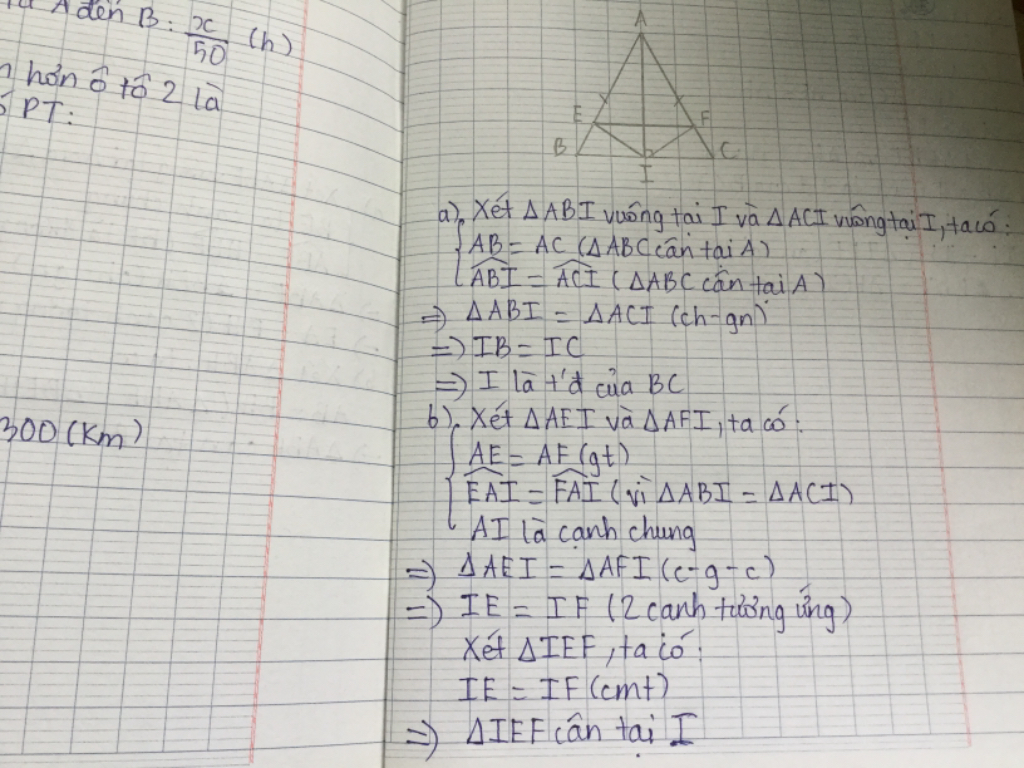 A đến B: x/50 (h)
hơn ô tô 2 là
PT:
300 (Km)
A
E F
B C
I
a). Xét ΔABI vuông tại I và ΔACI vuông tại I, ta có:
AB = AC (ΔABC cân tại A)
\widehat{ABI} = \widehat{ACI} (ΔABC cân tại A)
=) ΔABI = ΔACI (ch-gn)
=) IB = IC
=) I là t'đ của BC
b). Xét ΔAEI và ΔAFI, ta có:
AE = AF (gt)
\widehat{EAI} = \widehat{FAI} (vì ΔABI = ΔACI)
AI là cạnh chung
=) ΔAEI = ΔAFI (c-g-c)
=) IE = IF (2 cạnh tương ứng)
Xét ΔIEF, ta có:
IE = IF (cmt)
=) ΔIEF cân tại I